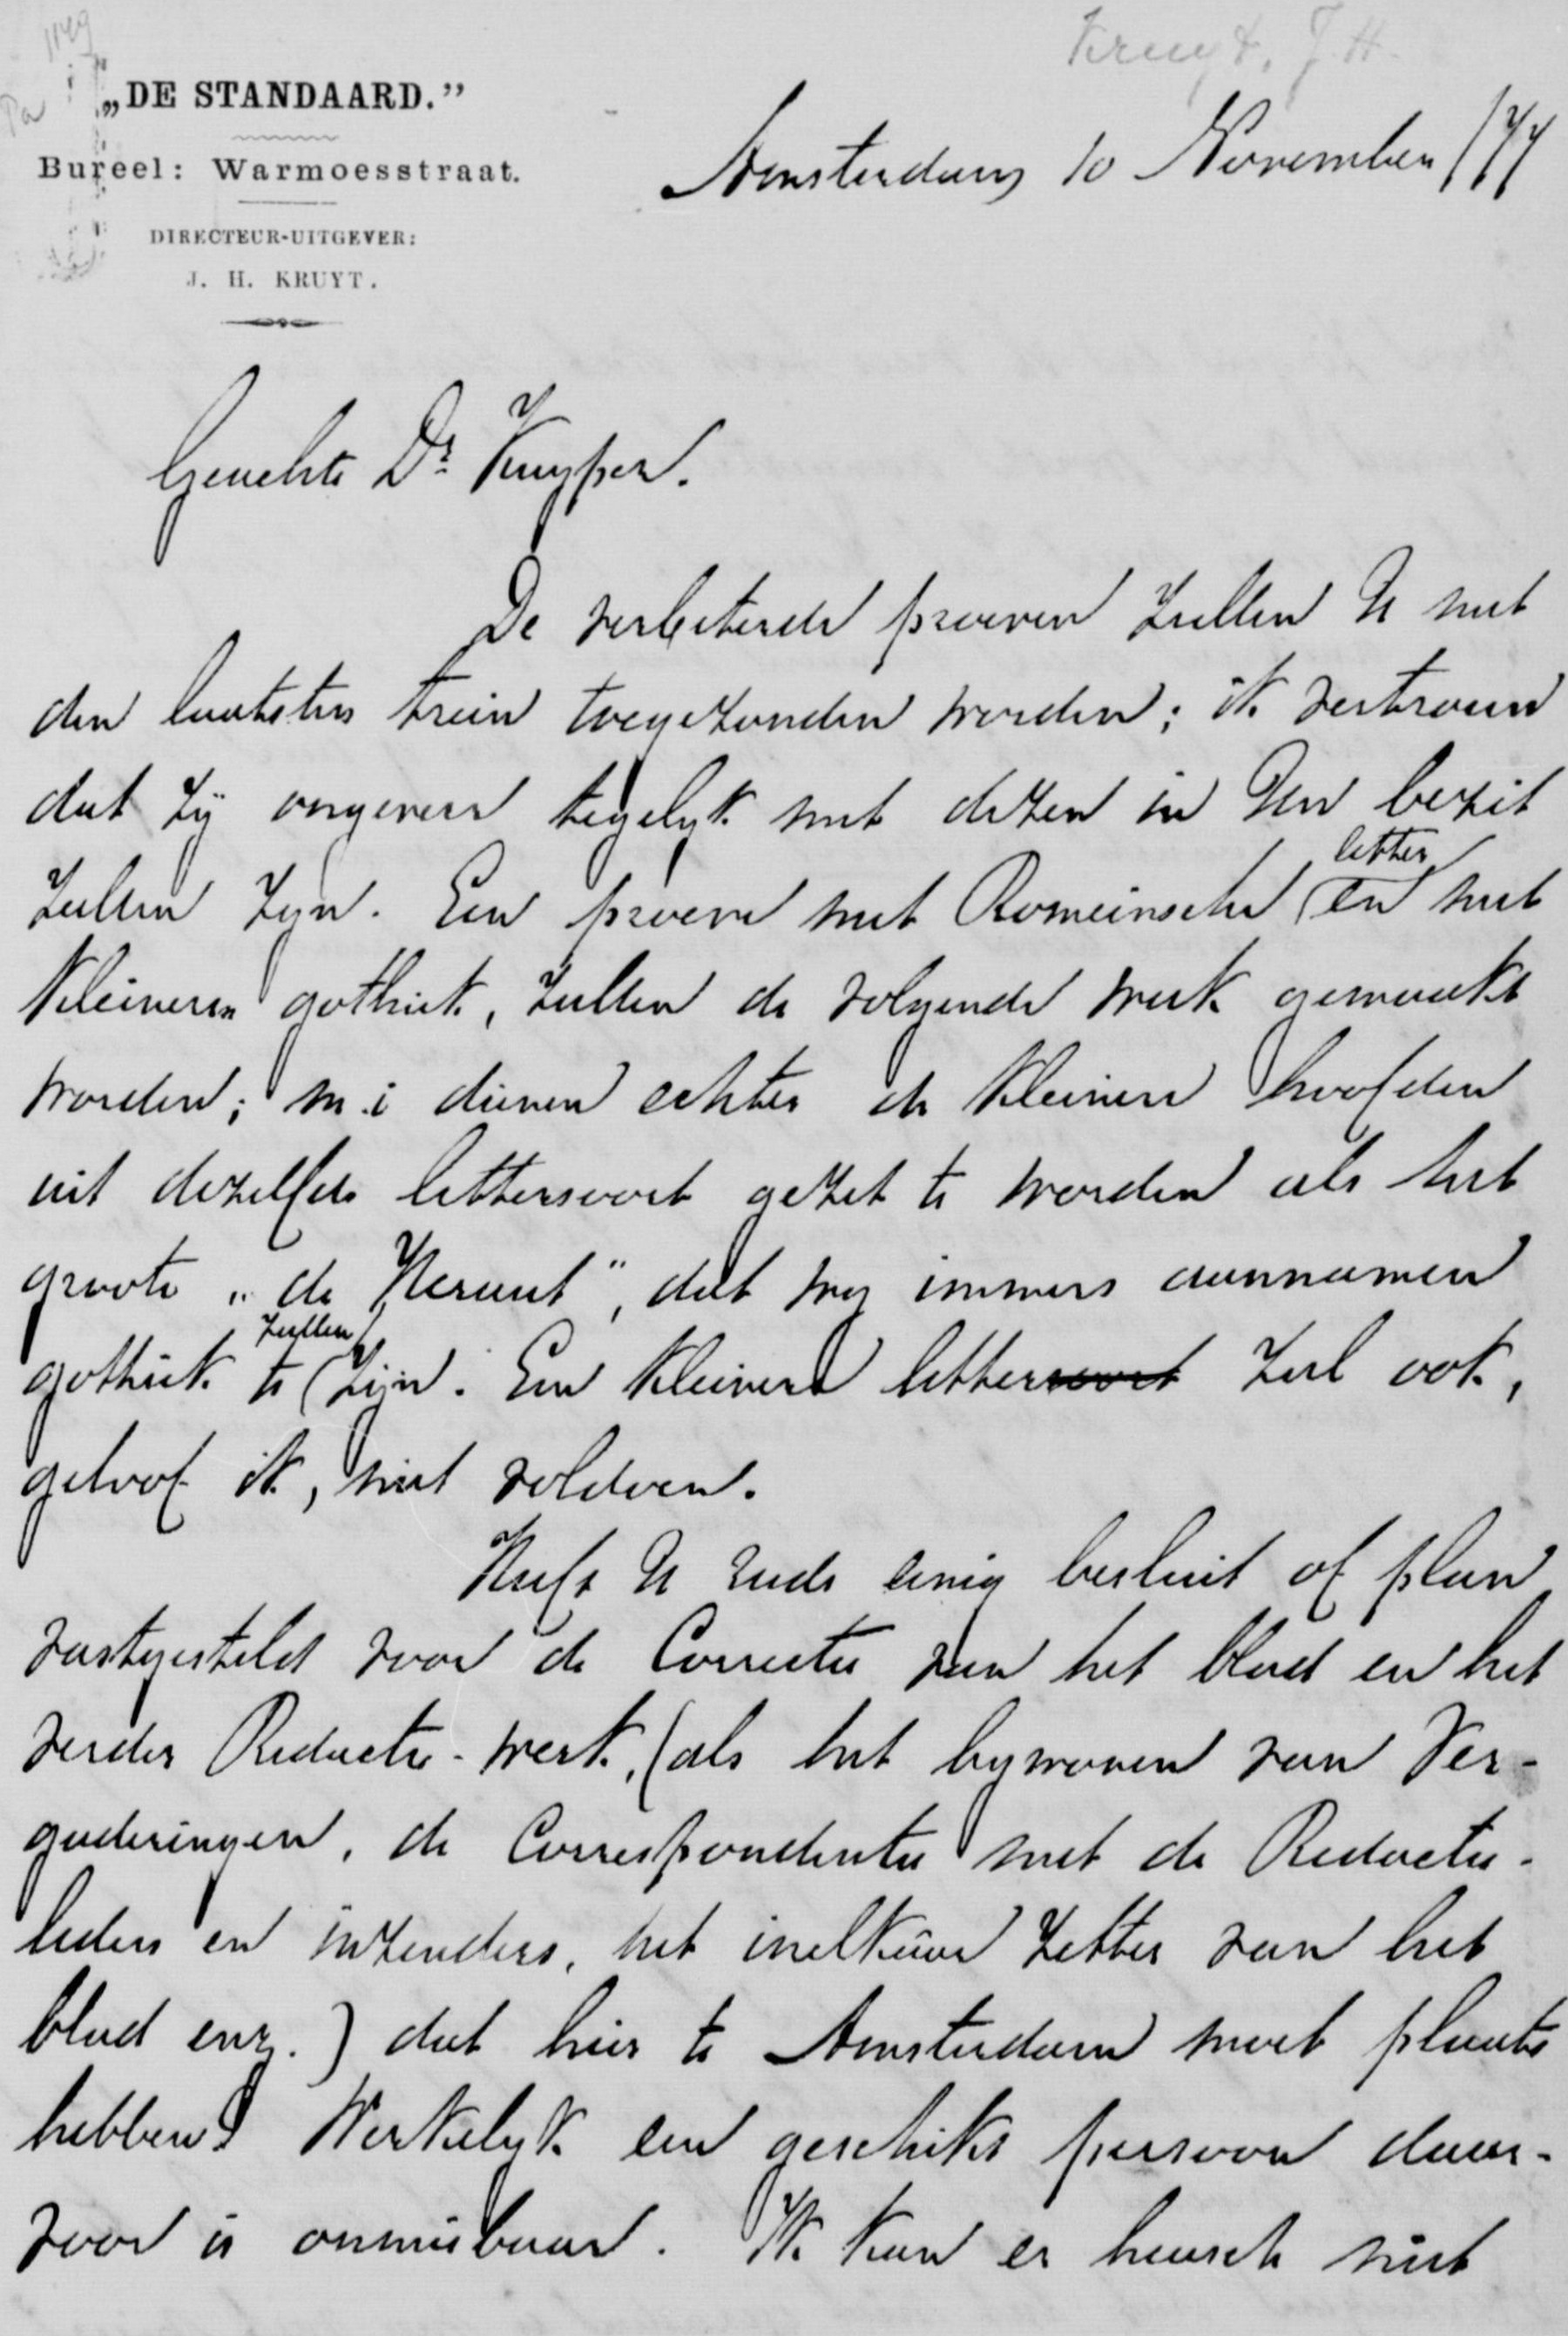 Kruyt, J. H.
1149
„DE STANDAARD.”
Bureel: Warmoesstraat.
DIRECTEUR-UITGEVER:
J. H. KRUYT.
Amsterdam 10 November /77
Geachte Dr Kuyper.
De verbeterde proeven zullen U met
den laatsten trein toegezonden worden; ik vertrouw
dat zij ongeveer tegelyk met dezen in Uw bezit
zullen zyn. Een proeve met Romeinsche letter en met
kleinere gothiek, zullen de volgende week gemaakt
worden; m.i dienen echter de kleinere hoofden
uit dezelfde lettersoort gezet te worden als het
groote „de Heraut”, dat wy immers aannamen
gothiek te zullen zijn. Een kleinere lettersoort zal ook,
geloof ik, niet voldoen.
Heeft U reeds eenig besluit of plan
vastgesteld voor de Correctie van het blad en het
verder Redactie-werk, (als het bywonen van Ver-
gaderingen, de Correspondentie met de Redactie-
leden en inzenders, het inelkaar zetten van het
blad enz.) dat hier te Amsterdam moet plaats
hebben? Werkelyk een geschikt persoon daar-
voor is onmisbaar. Ik kan er heusch niet